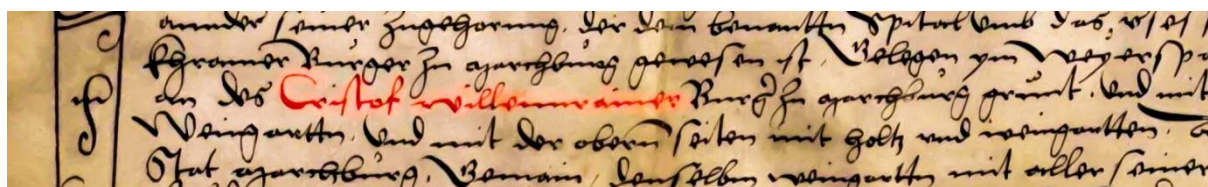 annder seiner Zugehorung, der dem benanttn Spital vmb das
khramer Burger Zu Marchburg gewesen ist, Gelegen ym Weyersp
an des Cristof Willenrainer Burger Zu Marchburg grunt, Vnd mit
Weingarttn, Vnd mit der obern seiten mit holtz vnd weingartten,
Stat Marchburg, Gemain, denselbn weingarttn mit aller seiner